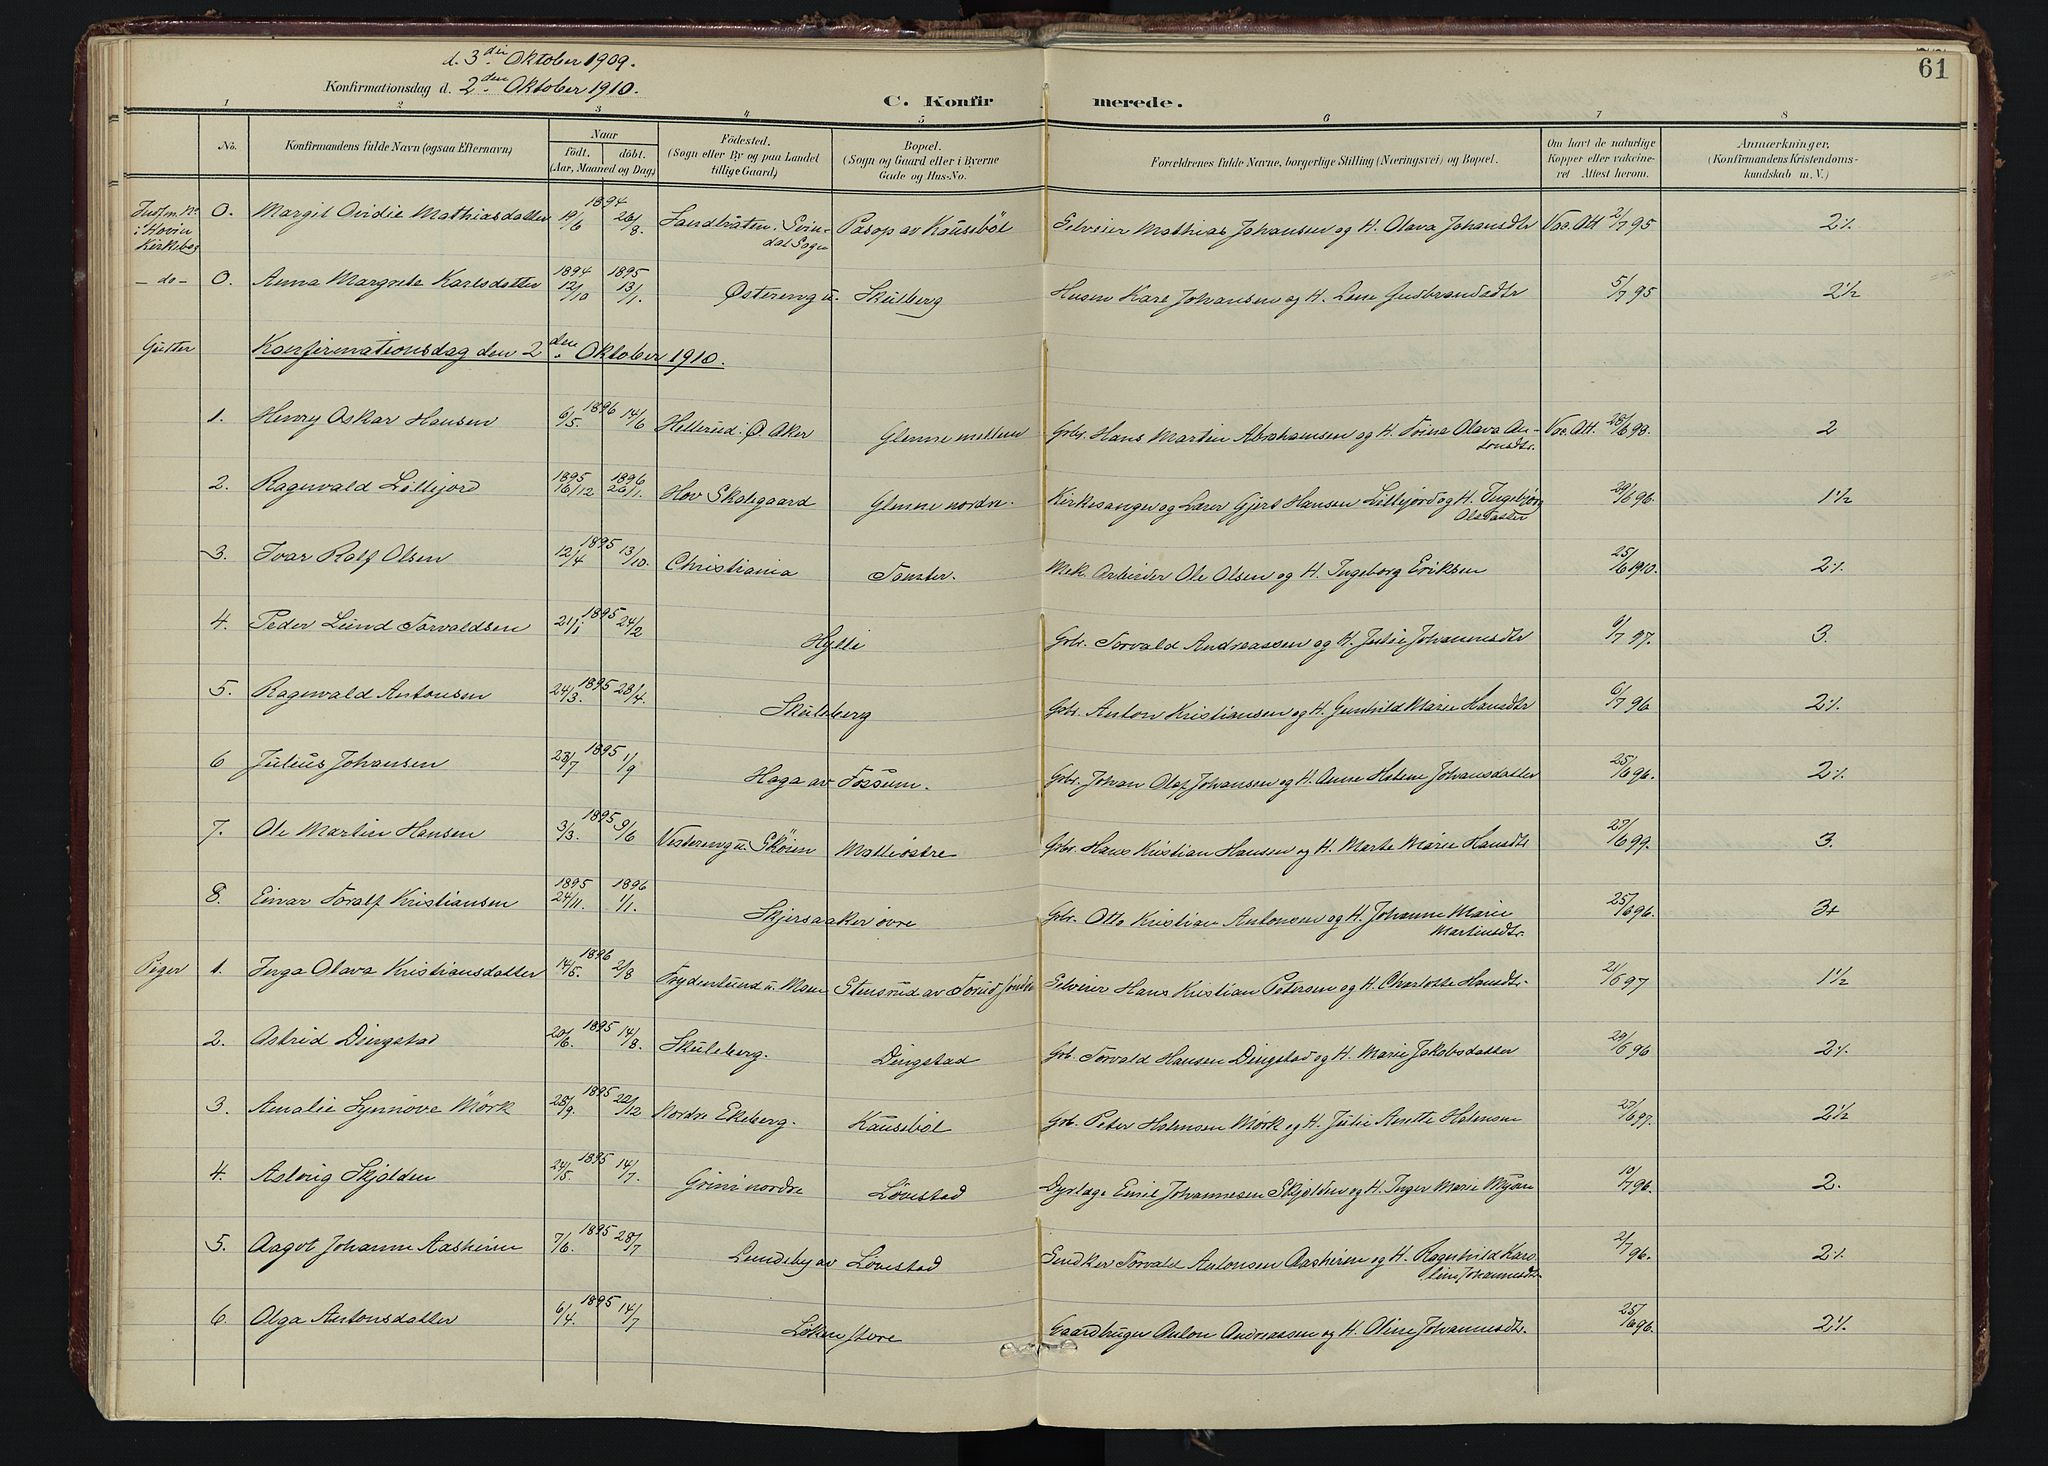 61
d. 3die Oktober 1909.
Konfirmationsdag d. 2den Oktober 1910.
C. Konfirmerede.
1 2 3 4 5 6 7 8
No. Konfirmandens fulde Navn (ogsaa Efternavn) Naar født. døbt. (Aar, Maaned og Dag) Födested. (Sogn eller By og paa Landet tillige Gaard) Bopæl. (Sogn og Gaard eller i Byerne Gade og Hus-No. Forældrenes fulde Navne, borgerlige Stilling (Næringsvei) og Bopæl. Om havt de naturlige Kopper eller vakcineret Attest herom. Anmærkninger, (Konfirmandens Kristendomskundskab m. V.)
i Hovin Kirkebog 0. Margit Ovidie Mathiasdatter 1894 19/6 26/8. Svindal Sogn Pasop av Kausebøl Selveier Mathias Johansen og H. Olava Johansdtr Vac. Att 2/7 95 2%
- do - 0. Anna Margrete Karlsdatter 1894 12/10 1895 13/1. Østereng u. Skuleberg Husm. Karl Johansen og H. Lene Gudbrandsdtr 5/7 95 2 1/2
Gutter Konfirmationsdag den 2den Oktober 1910.
1. Henry Oskar Hansen 1896 6/5. 14/6 Hellerud i Ø. Aker Glenne mellem Gbr. Hans Martin Abrahamsen og H. Olava Antonsdtr. Vac. Att. 28/6 98. 2
2. Ragnvald Lillejord 1895 16/12 1896 26/1. Hov Skolegaard Glenne nordre. Kirkesanger og Lærer Gjert Hansen Lillejord og H. Ingebjørg Olsdatter 29/6 96. 1 1/2
3. Ivar Rolf Olsen 1895 12/4 13/10. Christiania Tomter. Mek. Arbeider Ole Olsen og H. Ingeborg Eriksen 25/6 1910. 2%
4. Peder Lund Torvaldsen 1895 21/1 24/2 Hylli Gbr. Torvald Andreassen og H. Julie Johannesdtr 6/7 97. 3.
5. Ragnvald Antonsen 1895 24/3. 28/4. Skuleberg Gbr. Anton Kristiansen og H. Gunhild Marie Hansdtr 6/7 96 2%
6 Julius Johansen 1895 28/7 1/9 Haga av Fossum. Gbr. Johan Olaf Johansen og H. Anne Helene Johansdatter 25/6 96. 2%
7. Ole Martin Hansen 1895 3/3. 9/6 Vestereng u. Skøien Melleiøstre Gbr. Hans Kristian Hansen og H. Marte Marie Hansdtr 27/6 99. 3.
8. Einar Toralf Kristiansen 1895 24/11. 1896 1/1. Skjersaaker øvre Gbr. Otto Kristian Antonsen og H. Johanne Marie Martinsdtr. 25/6 96. 3+
Piger 1. Inga Olava Kristiansdatter 1896 14/5. 2/8 Frydenlund u. Moen Stensrud av Torud søndre Selveier Hans Kristian Petersen og H. Charlotte Hansdtr. 21/6 97 1 1/2
2. Astrid Dingstad 1895 20/6. 14/8. Skuleberg. Dingstad Gb. Torvald Hansen Dingstad og H. Marie Jakobsdatter 29/6 96 2%
3. Amalie Synnøve Mørk 1895 28/9. 22/12 Nordre Ekeberg. Kausebøl Gb. Peter Holmsen Mørk og H. Julie Anette Holmsen 27/6 97. 2 1/2
4. Aslaug Skjolden 1895 24/5. 14/7. Grini nordre Løvestad Dyrlæge Emil Johannesen Skjolden og H. Inger Marie Mysen 10/7 96. 2.
5. Aagot Johanne Aasheim 1895 7/6. 28/7 Lundeby av Løvestad Snedker Torvald Antonsen Aasheim og H. Ragnhild Karoline Johannesdtr 2/7 96. 2%
6. Olga Antonsdatter 1895 6/4. 14/7 Løken store Gaardbruger Anton Andreassen og H. Oline Johannesdtr. 25/6 96. 2%